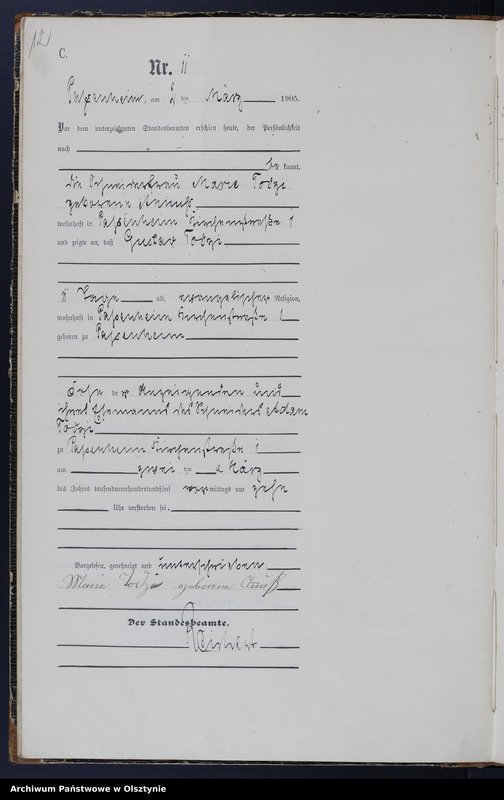 12
C.
Nr. 11
Passenheim, am 2 ten März 1905.
Vor dem unterzeichneten Standesbeamten erschien heute, der Persönlichkeit
nach
be kannt,
die Schneiderfrau Marie
geborene
wohnhaft in Passenheim Kirchenstraße 1
und zeigte an, daß Gustav
11 Tage alt, evangelischer Religion,
wohnhaft in Passenheim Kirchenstraße 1
geboren zu Passenheim
Sohn der Anzeigenden und
ihres Ehemanns des Schneiders Adam
zu Passenheim Kirchenstraße 1
am zwei ten März
des Jahres tausendneunhundertundfünf vor mittags um zehn
Uhr verstorben sei.
Vorgelesen, genehmigt und unterschrieben.
Marie geborene
Der Standesbeamte.
Archiwum Państwowe w Olsztynie